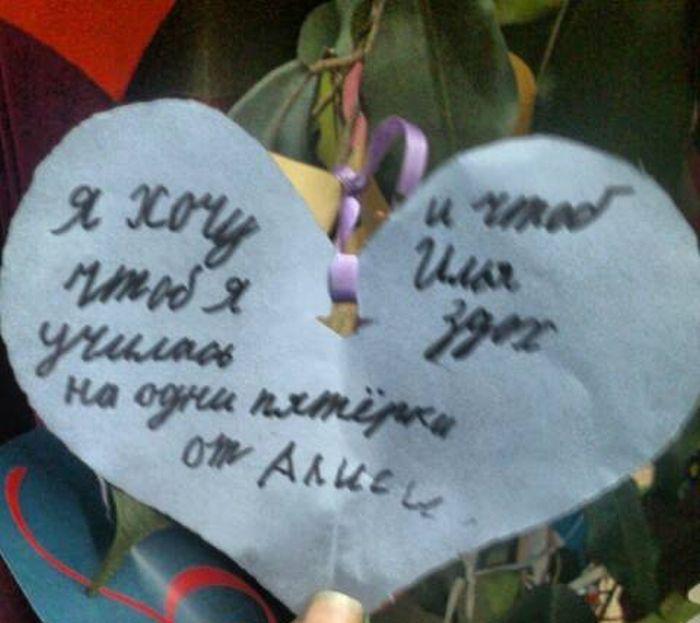 я хочу
чтоб я
училась
на одни пятёрки
от Алисы.
и чтоб
Илья
здох